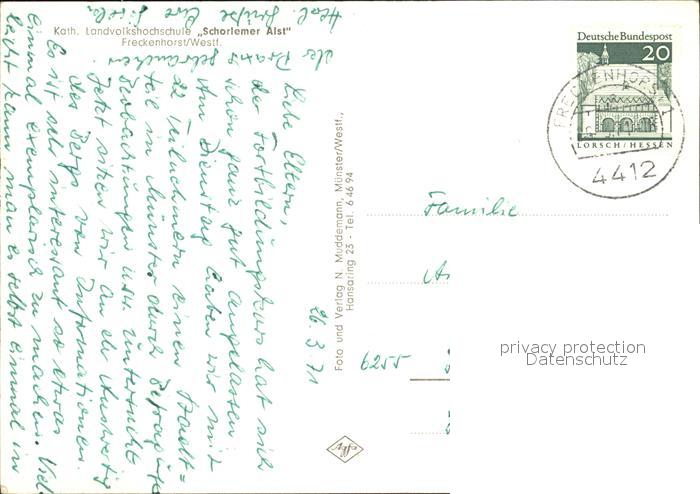 Kath. Landvolkshochschule „Schorlemer Alst"
Freckenhorst/Westf.
Deutsche Bundespost
20
LORSCH/HESSEN
FRECKENHORST
4412
Foto und Verlag N. Muddemann, Münster/Westf.,
Hansaring 23 - Tel. 6 46 94
Agfa
Familie
6255
privacy protection
Datenschutz
26.3.71
Liebe Eltern,
der Fortbildungskurs hat sich
schon ganz gut angelassen.
Am Dienstag haben wir mit
22 Teilnehmern einen Stadt=
teil in Münster durch Befragung,
Beobachtungen usw. untersucht.
Jetzt sitzen wir an der Auswertung
des Bergs von Informationen.
Es ist sehr interessant so etwas
einmal exemplarisch zu machen. Viel
leicht kann man es selbst einmal in
der Praxis gebrauchen.
Herzl. Grüße Eure